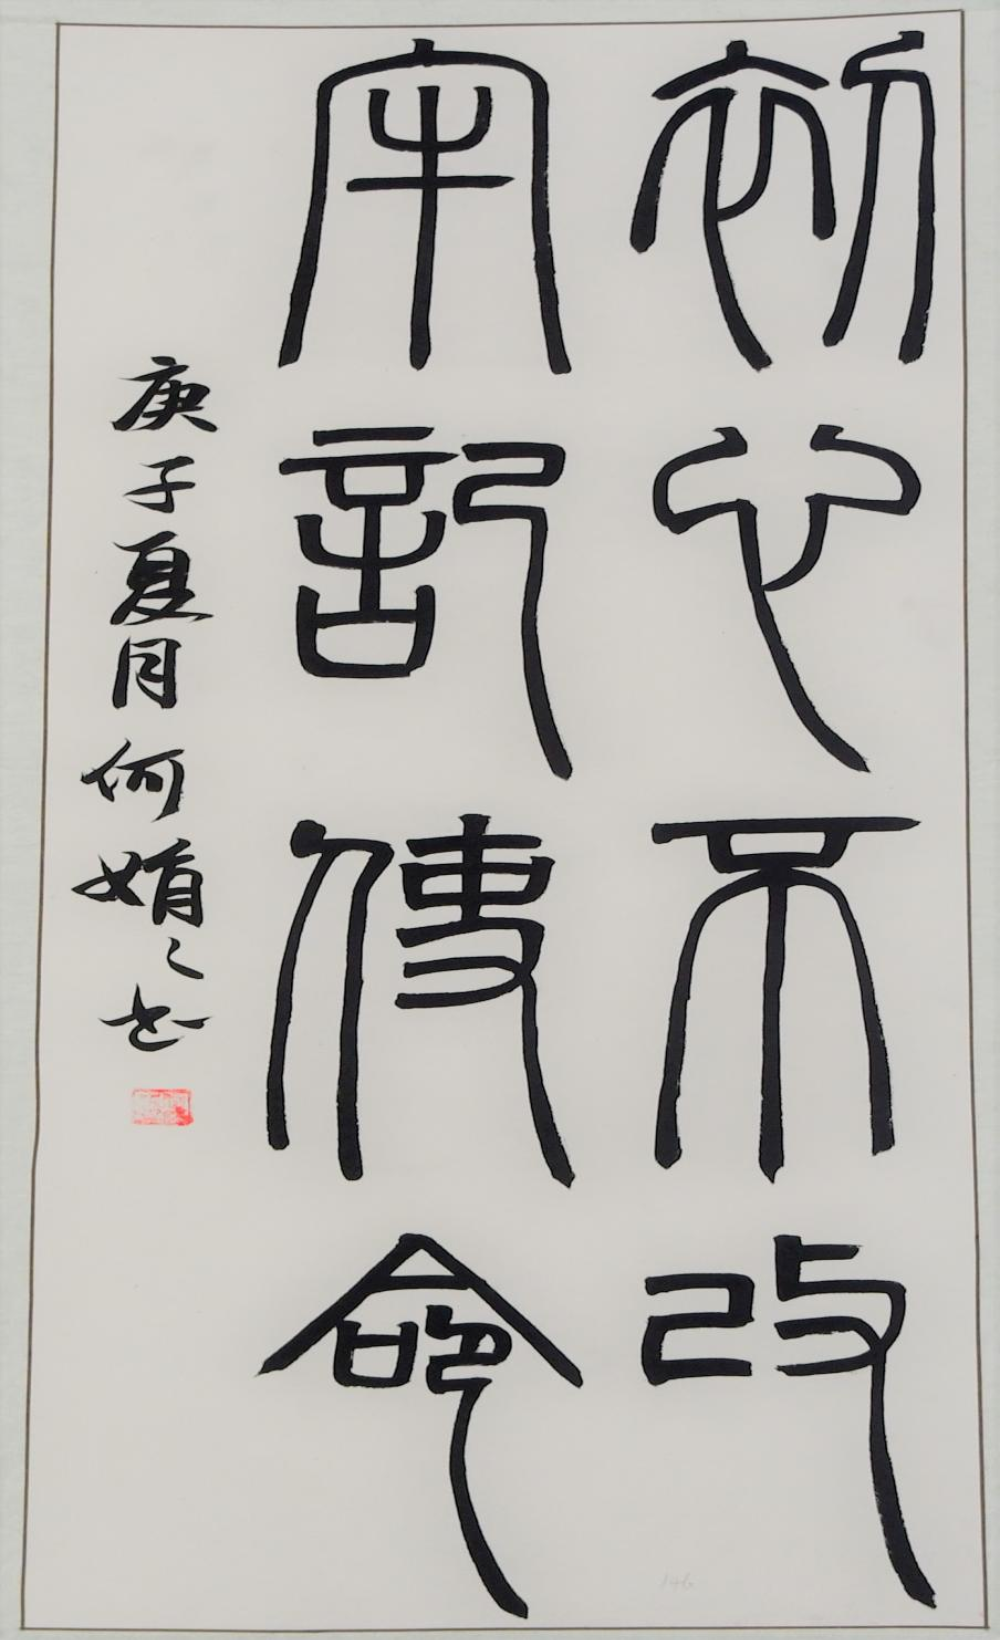 初心不改
牢記使命
庚子夏月何娟娟书
146